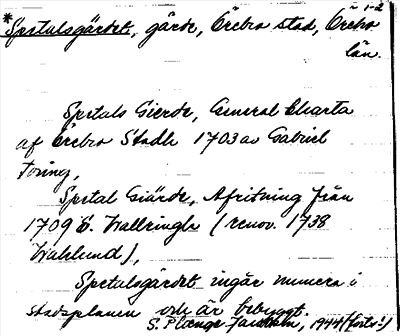 *Spetalsgärdet, gärde, Örebro stad, Örebro
län.
Spetals Gierde, General Charta
af Örebro Stadh 1703 av Gabriel
Toring,
Spetal Giärde, Afritning från
1709 G. Wallringh (renov. 1738
Wahlund),
Spetalsgärdet ingår numera i
stadsplanen och är bebyggt.
S. Plænge Jacobson, 1944 (forts!)